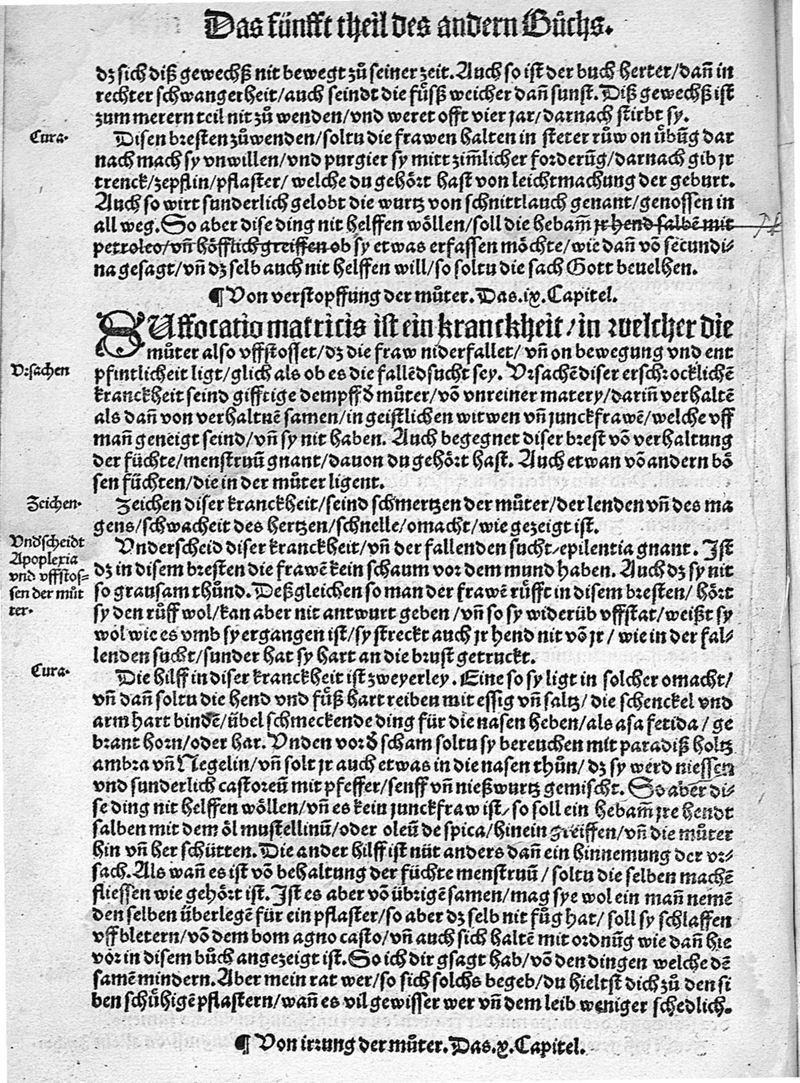 Das fünfft theil des andern Bůchs.
dz sich diß gewechß nit bewegt zů seiner zeit. Auch so ist der buch herter/dañ in
rechter schwangerheit/auch seindt die füsß weicher dañ sunst. Diß gewechß ist
zum merern teil nit zů wenden/vnd weret offt vier jar/darnach stirbt sy.
Cura.
Disen bresten zůwenden/soltu die frawen halten in steter růw on übũg dar
nach mach sy vnwillen/vnd purgier sy mitt zim̃licher forderũg/darnach gib jr
trenck/zepflin/pflaster/welche du gehört hast von leichtmachung der geburt.
Auch so wirt sunderlich gelobt die wurtz von schnittlauch genant/genossen in
all weg. So aber dise ding nit helffen wöllen/soll die hebam̃ jr hend salbẽ mit
petroleo/vñ höfflich greiffen ob sy etwas erfassen möchte/wie dañ võ secundi-
na gesagt/vñ dz selb auch nit helffen will/so soltu die sach Gott beuelhen.
¶ Von verstopffung der můter. Das.ix.Capitel.
SUffocatio matricis ist ein kranckheit/in welcher die
můter also vffstosset/dz die fraw niderfallet/vñ on bewegung vnd ent
Vrsachen
pfintlicheit ligt/glich als ob es die fallẽdsucht sey. Vrsachẽ diser erschrocklichẽ
kranckheit seind gifftige dempff d̕ můter/võ vnreiner matery/dariñ verhaltẽ
als dañ von verhaltnẽ samen/in geistlichen witwen vñ junckfrawẽ/welche vff
mañ geneigt seind/vñ sy nit haben. Auch begegnet diser brest võ verhaltung
der füchte/menstruũ gnant/dauon du gehört hast. Auch etwan võ andern bö
sen füchten/die in der můter ligent.
Zeichen.
Zeichen diser kranckheit/seind schmertzen der můter/der lenden vñ des ma
gens/schwacheit des hertzen/schnelle/omacht/wie gezeigt ist.
Vndscheidt
Apoplexia
vnd vffstos-
sen der můt
ter.
Vnderscheid diser kranckheit/vñ der fallenden sucht/epilentia gnant. Ist
dz in disem bresten die frawẽ kein schaum vor dem mund haben. Auch dz sy nit
so grausam thůnd. Deßgleichen so man der frawẽ růfft in disem bresten/hört
sy den růff wol/kan aber nit antwurt geben/vñ so sy widerüb vffstat/weißt sy
wol wie es vmb sy ergangen ist/sy streckt auch jr hend nit võ jr/wie in der fal-
lenden sucht/sunder hat sy hart an die brust getruckt.
Cura.
Die hilff in diser kranckheit ist zweyerley. Eine so sy ligt in solcher omacht/
vñ dañ soltu die hend vnd fůß hart reiben mit essig vñ saltz/die schenckel vnd
arm hart bindẽ/übel schmeckende ding für die nasen heben/als asa fetida/ge
brant horn/oder har. Vnden vor d̕ scham soltu sy bereuchen mit paradiß holtz
ambra vñ Negelin/vñ solt jr auch etwas in die nasen thůn/dz sy werd niessen
vnd sunderlich castoreũ mit pfeffer/senff vñ nießwurtz gemischt. So aber di-
se ding nit helffen wöllen/vñ es kein junckfraw ist/so soll ein hebam̃ jre hendt
salben mit dem öl mustellinũ/oder oleũ de spica/hinein greiffen/vñ die můter
hin vñ her schütten. Die ander hilff ist nüt anders dañ ein hinnemung der vr-
sach. Als wañ es ist võ behaltung der füchte menstruũ/soltu die selben machẽ
fliessen wie gehört ist. Ist es aber võ übrigẽ samen/mag sye wol ein mañ nemẽ
den selben überlegẽ für ein pflaster/so aber dz selb nit fůg hat/soll sy schlaffen
vff bletern/võ dem bom agno casto/vñ auch sich haltẽ mit ordnũg wie dañ hie
vor in disem bůch angezeigt ist. So ich dir gsagt hab/võ den dingen welche dẽ
samẽ mindern. Aber mein rat wer/so sich solchs begeb/du hieltst dich zů den si
ben schůhigẽ pflastern/wañ es vil gewisser wer vñ dem leib weniger schedlich.
¶ Von irrung der můter. Das.x.Capitel.